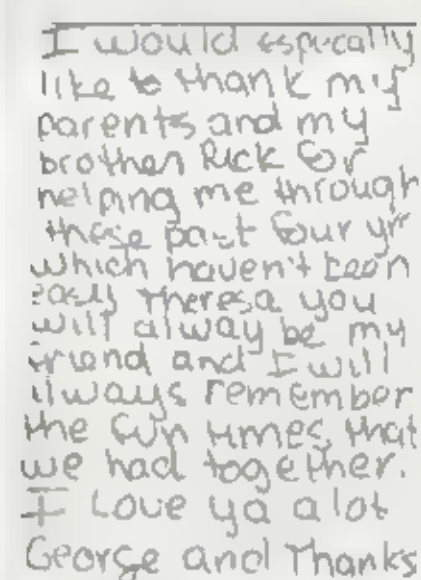 I would espically
like to thank my
parents and my
brother Rick for
helping me through
these past four yr
which haven't been
easy Theresa you
will alway be my
friend and I will
always remember
the fun times that
we had together.
I Love ya alot
George and Thanks